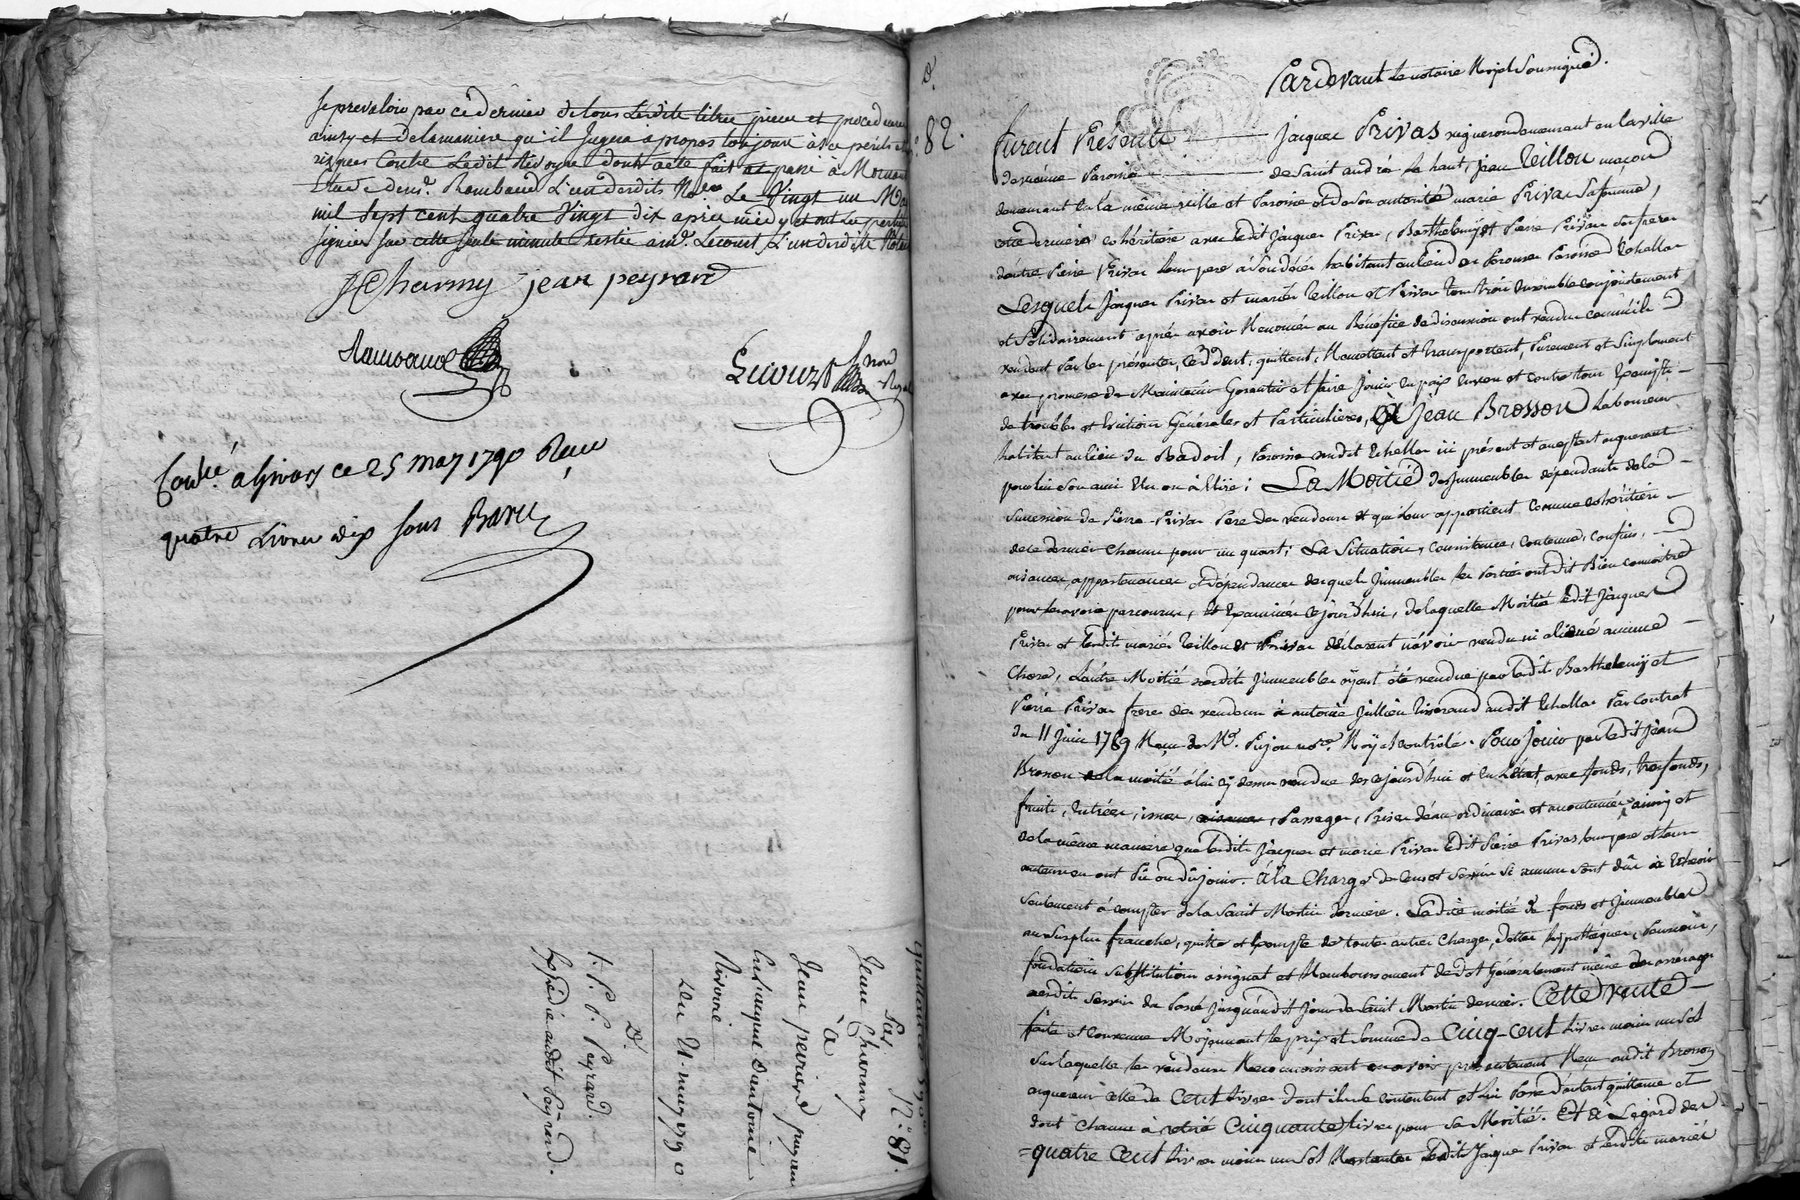 se prevaloir par ce dernier de tous lesdits titres pieces et procedures
ainsy et de la maniere qu'il Jugera apropos toujours à ses périls et
risques Contre Ledit Revoyre dont acte fait et passé à Mornant
Etude de me. Rambaud L'un desdits Nores Le Vingt un May
mil sept cent quatre Vingt dix après midy et ont les parties
signées sur cette seule minute restée a me. Lecourt L'un desdits Notaires
JCharmy jean peyrard
Rambaud
Lecourt
nore
Royal
Conlé. a Givors ce 25 may 1790 Reçu
quatre Livres dix sous
No. 81.
Par
Jean Charmy
à
Jean peirard
Du 21 may 1790
1: P. P. Peyrard.
Expédié audit Peyrard.
82.
Pardevant Le notaire Royal Soussigné.
furent Présents Jacques Privas vigneron demeurant en la ville
de Vienne Paroisse de Saint andré le haut, jean Teillon maçon
demeurant en la même ville et Paroisse et de Son autorité marie Privas Sa femme,
cette derniere cohéritiere avec ledit Jacques Privas, Barthelemy et Pierre Privas Ses freres
de autre Pierre Privas leur pere à Son décès habitant au lieu de Paroisse d'Echallas
Lesquels Jacques Privas et mariés Teillon et Privas tous trois Ensemble conjointement
et Solidairement après avoir Renoncé au Bénéfice de discussion ont vendu comme ils
vendent Par les présentes, cedent, quittent, Remettent et transportent, Purement et Simplement
avec promesse de Maintenir Garantir et faire Jouir En paix Envers et contre tous Exempts
de troubles et Evictions Générales et Particulieres, à Jean Brosson Laboureur
habitant au lieu du Badoil, Paroisse dudit Echallas ici présent et acceptant acquereur
pour lui Son ami Elu ou à Elire; La Moitié des Jmmeubles dépendants de la
Succession de Pierre Privas Pere des vendeurs et qui leur appartient Comme cohéritiers
de ce dernier chacun pour un quart; La Situation, Consistance, Contenue, confins,
aisances, appartenances et dépendances desquels Jmmeubles les Parties ont dit Bien connoitre
pour les avoir parcourus, et Examinés cejourd'hui, de laquelle Moitié ledit Jacques
Privas et lesdits mariés Teillon et Privas déclarent n'avoir vendu ni aliéné aucune
Chose, L'autre Moitié desdits Jmmeubles ayant été vendue par lesdits Barthelemy et
Pierre Privas freres des vendeurs à antoine Jullien tisserand audit Echallas Par Contrat
du 11 Juin 1789 Reçu de Me. Pujon nore. Royal contrôlé. Pour Jouir par ledit Jean
Brosson de la moitié à lui cy dessus vendue dès cejourd'hui et En l'état, avec fonds, trèsfonds,
fruits, Entrées, issues, aisances, Passages, Prises d'eau ordinaires et accoutumées, ainsi et
de la même maniere que lesdits Jacques et marie Privas ledit Pierre Privas leur pere et leurs
auteurs en ont Pû ou dû jouir. à la Charge de Cens et Servis Si aucuns Sont dûs à Echeoir
Seulement à compter de la Saint Martin derniere. Ladite moitié de fonds et Jmmeubles
au Surplus franche, quitte et Exempte de toutes autres Charges, dettes hypotheques, Pensions,
fondations Substitutions assignat et Remboursement de dot Généralement même des arrérages
desdits Servis du Passé Jusqu'audit Jour de Saint Martin dernier. Cette vente
faite et convenue Moyennant le prix et Somme de Cinq-cent livres moins un Sol
Sur laquelle les vendeurs Reconnoissent en avoir présentement Reçu audit Brosson
acquereur celle de Cent livres dont ils se contentent et lui Passe d'autant quittance et
dont Chacun à retiré Cinquante livres pour Sa Moitié. Et à L'égard des
quatre Cent livres moins un Sol Restantes ledit Jacques Privas et lesdits mariés